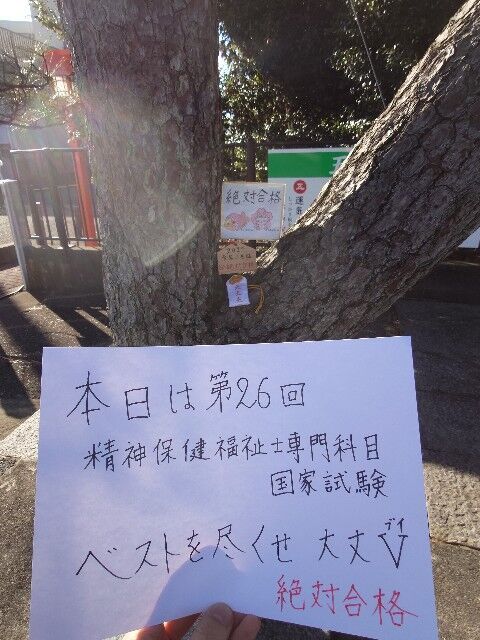 絶対合格
本日は第26回
精神保健福祉士専門科目
国家試験
ベストを尽くせ 大丈V
ブイ
絶対合格